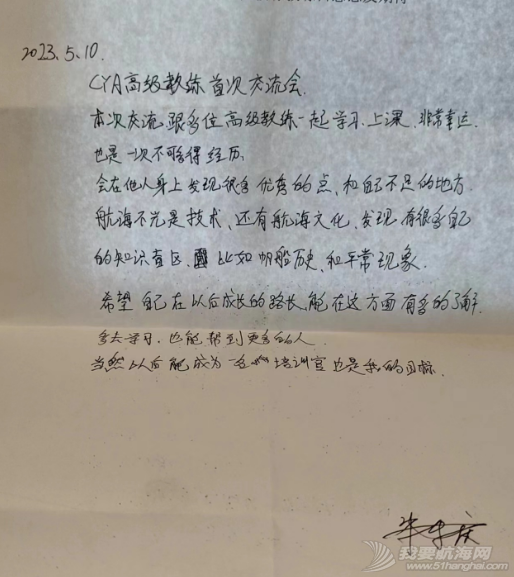 2023.5.10.
CYA高级教练首次交流会.
本次交流,跟多位高级教练一起学习.上课.非常幸运.
也是一次不可多得经历.
会在他人身上发现很多优秀的点,和自己不足的地方.
航海不光是技术,还有航海文化,发现有很多自己
的知识盲区, 比如帆船历史,和平常现象.
希望自己在以后成长的路长,能在这方面有多的了解.
多去学习,也能帮到更多的人
当然以后能成为一名 培训官也是我的目标.
我要航海网
www.51hanghai.com